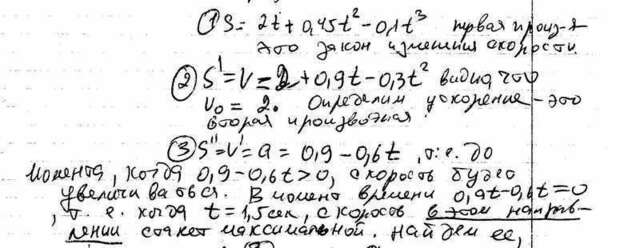 ① S = 2t + 0,45t² - 0,1t³ первая произ-я
это закон изменения скорости.
② S' = V = 2 + 0,9t - 0,3t² видна что
V₀ = 2. Определим ускорение - это
вторая производная.
③ S'' = V' = a = 0,9 - 0,6t, т.е. до
момента, когда 0,9 - 0,6t > 0, скорость будет
увеличиваться. В момент времени 0,9t - 0,6t = 0
, т. е. когда t = 1,5 сек, скорось в этом направ-
лении станет максимальной. Найдем ее,